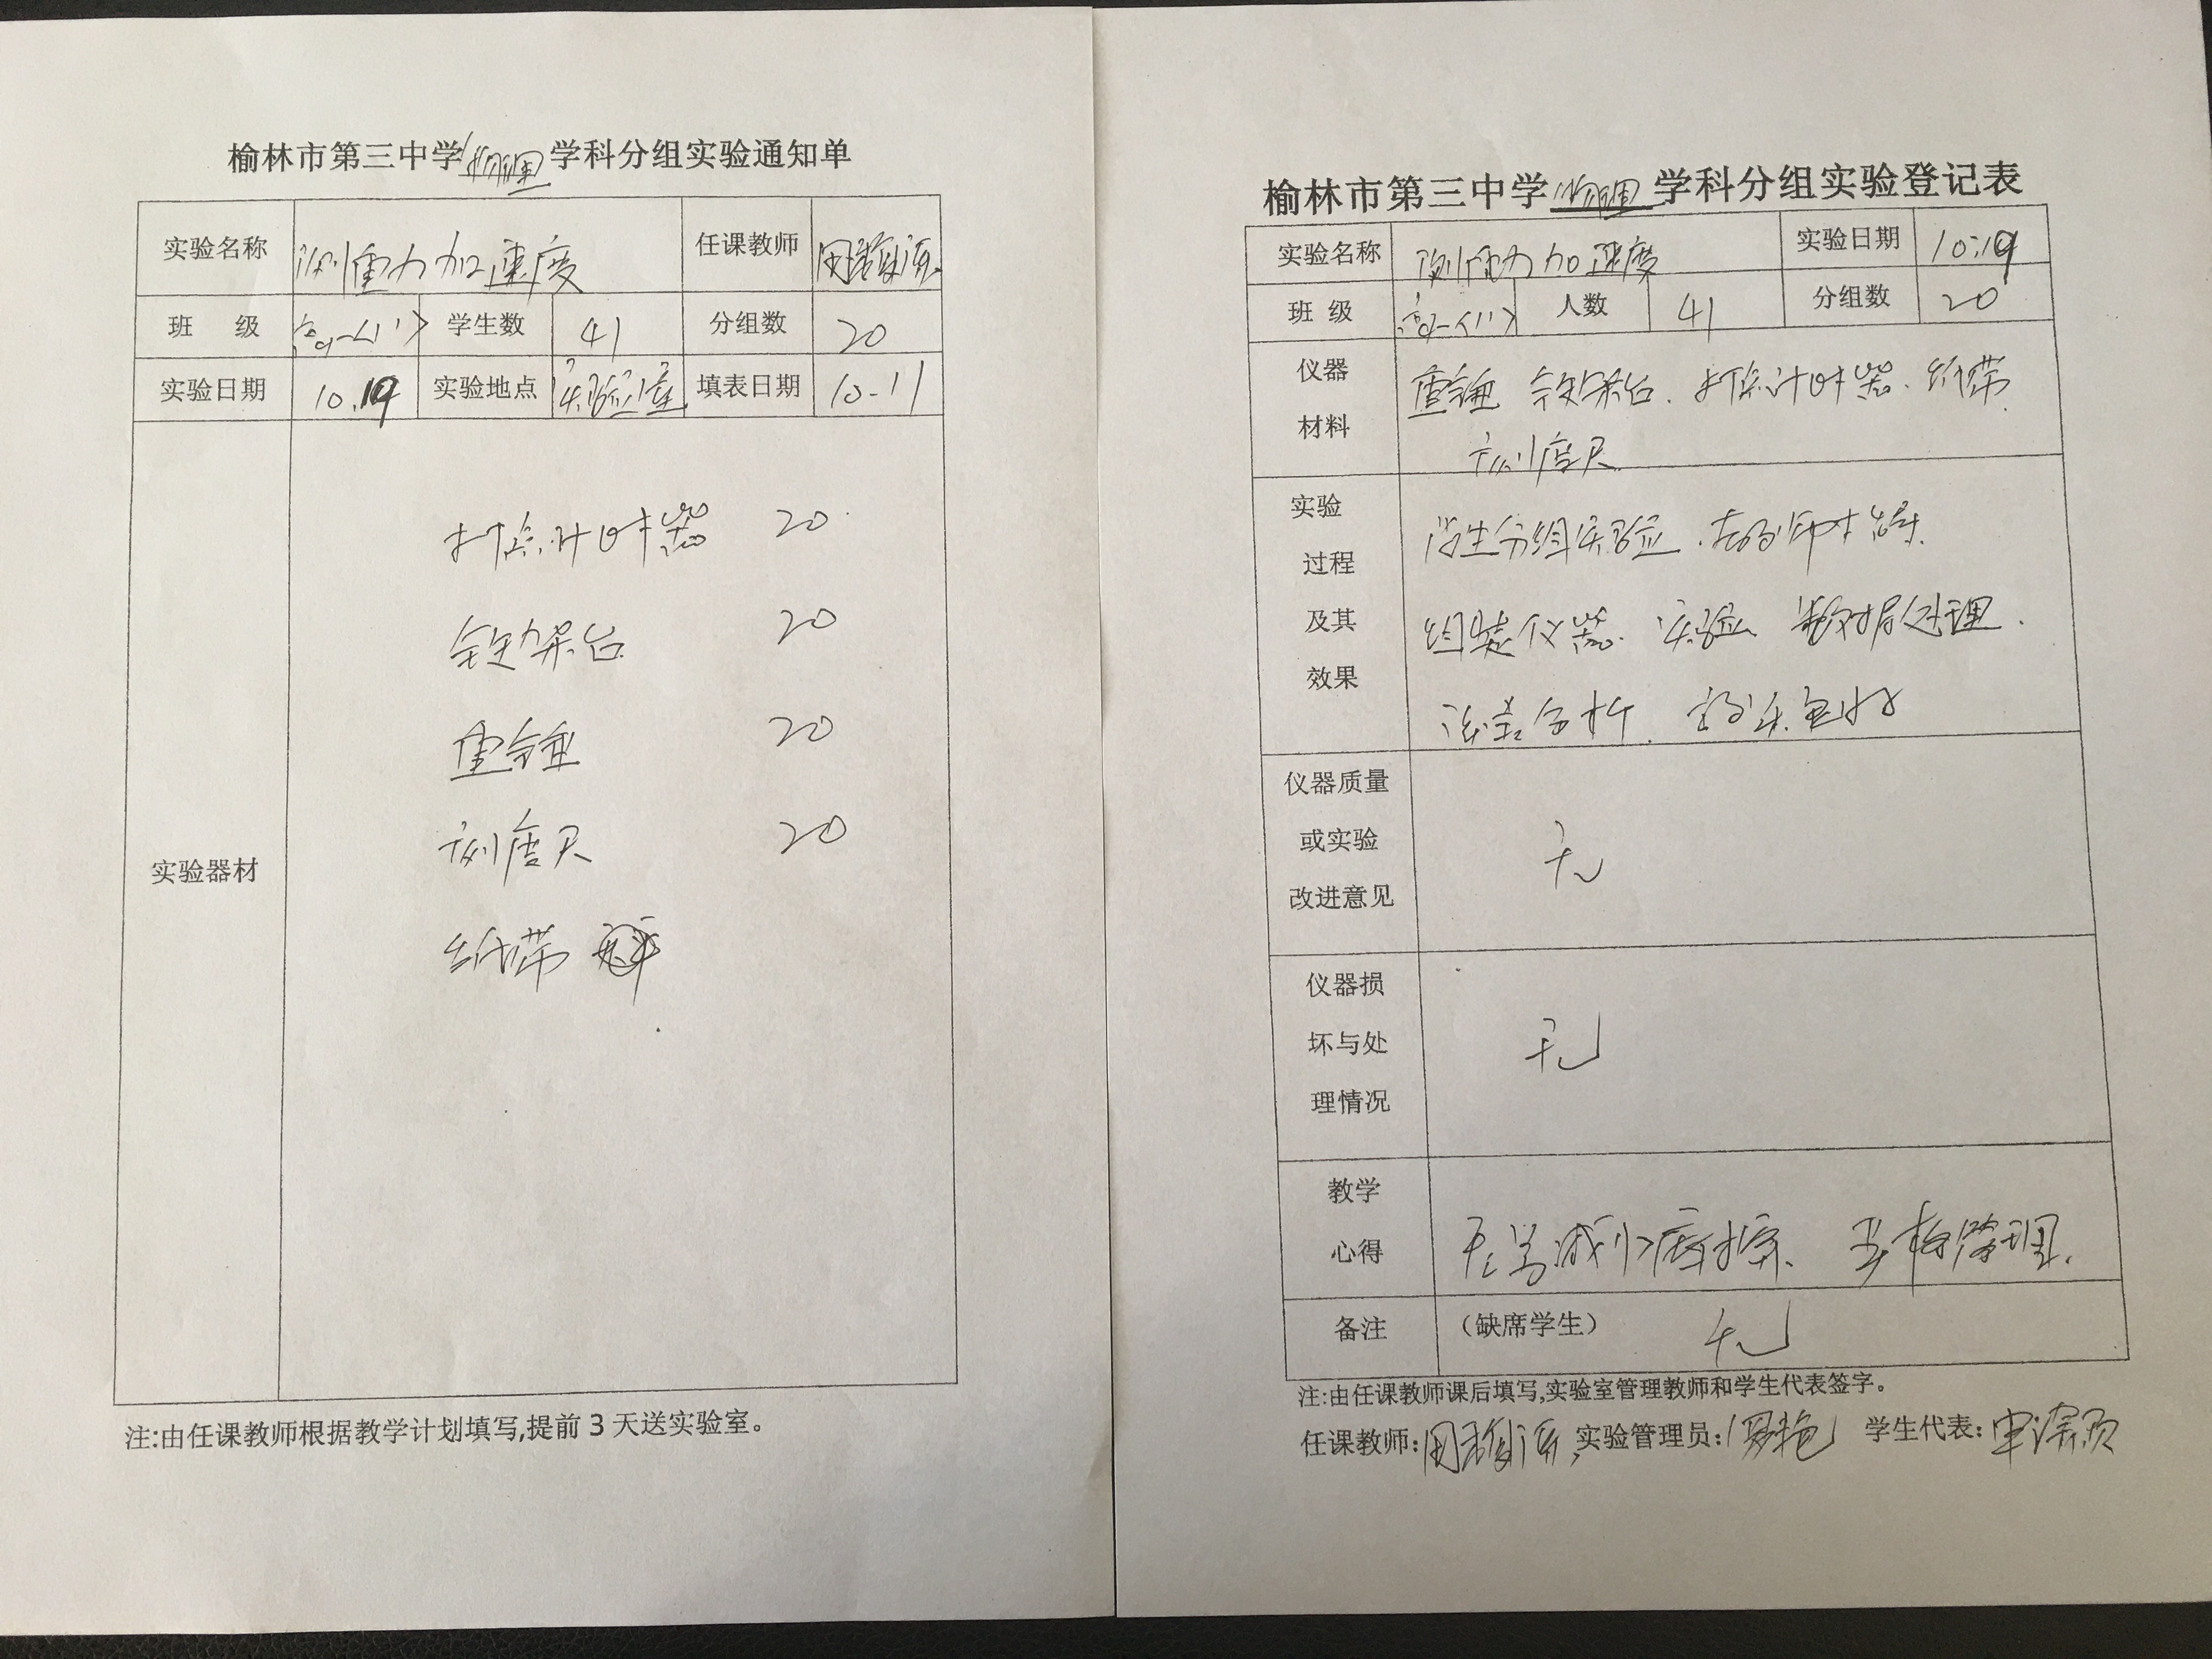 榆林市第三中学物理学科分组实验通知单
实验名称 测重力加速度 任课教师
班 级 高一(1) 学生数 41 分组数 20
实验日期 10.19 实验地点 实验室 填表日期 10-11
实验器材
打点计时器 20
铁架台 20
重锤 20
刻度尺 20
纸带
注:由任课教师根据教学计划填写,提前3天送实验室。
榆林市第三中学物理学科分组实验登记表
实验名称 测重力加速度 实验日期 10.19
班 级 高一(1) 人数 41 分组数 20
仪器材料 重锤 铁架台.打点计时器.纸带
刻度尺
实验过程及其效果 学生分组实验.在老师指导
组装仪器.实验 数据处理.
误差分析.效果良好
仪器质量或实验改进意见 无
仪器损坏与处理情况 无
教学心得 减小摩擦、
备注 (缺席学生) 无
注:由任课教师课后填写,实验室管理教师和学生代表签字。
任课教师: 实验管理员: 学生代表: